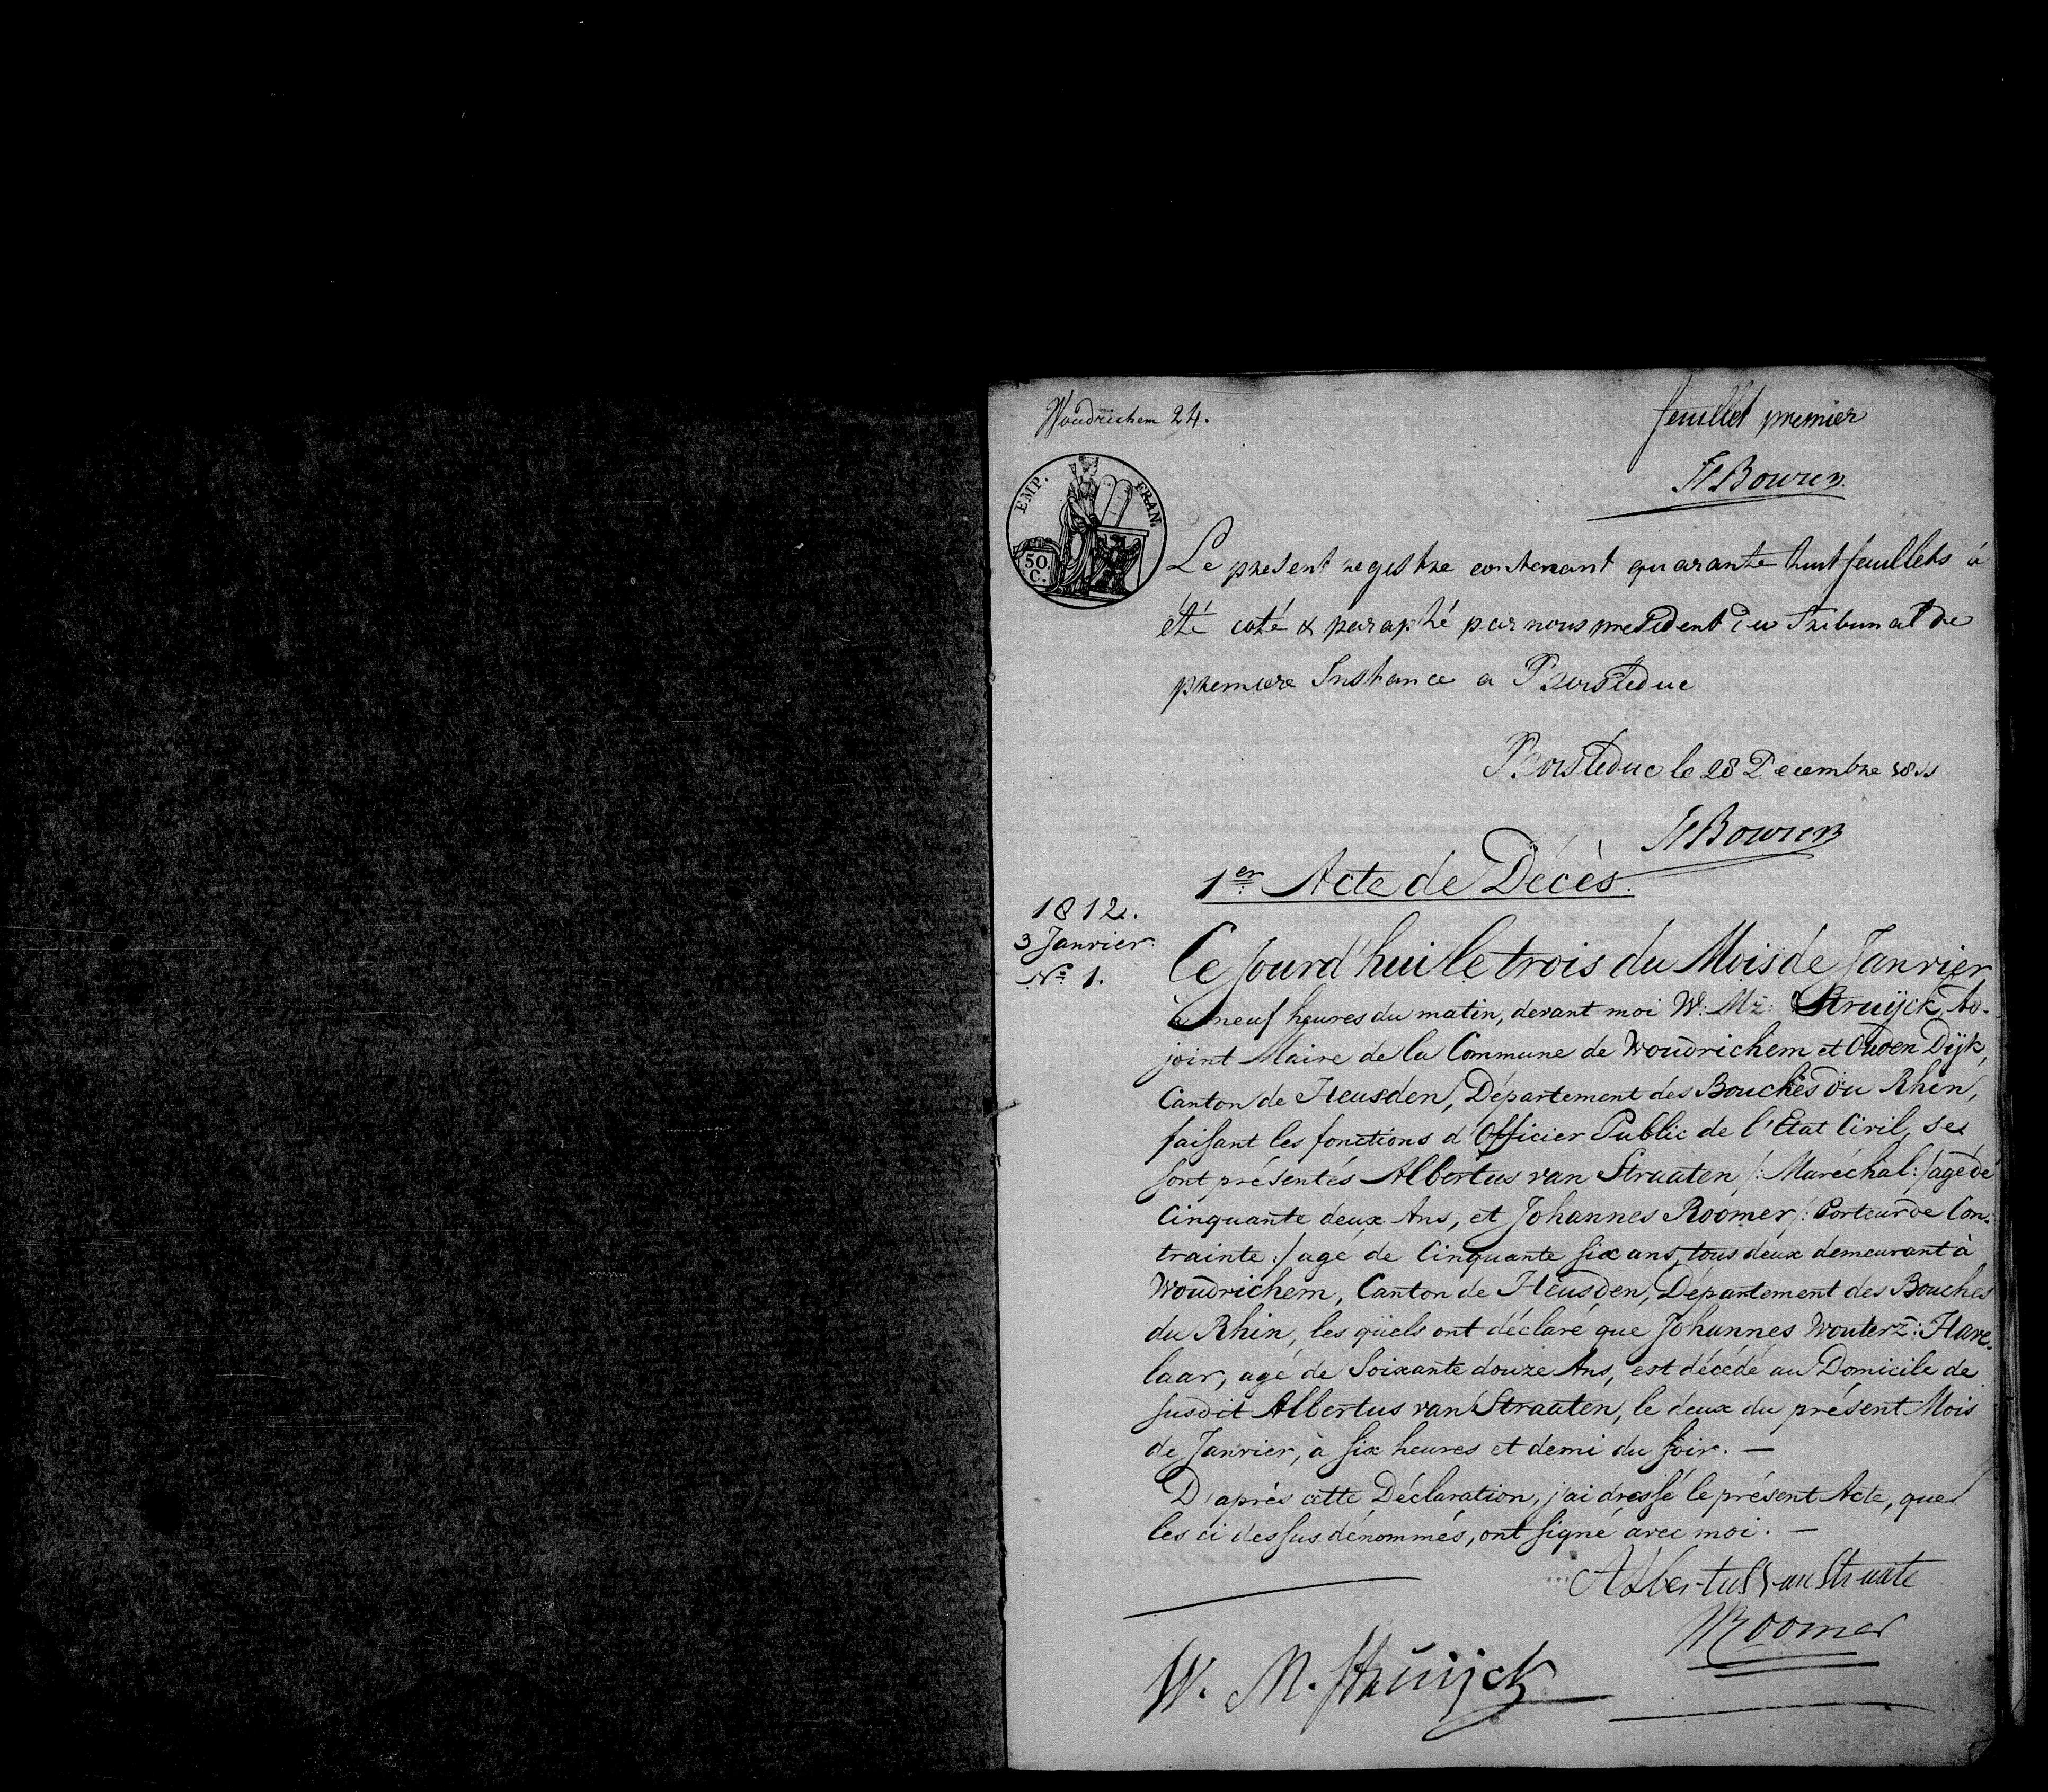 Woudrichem 24.
feuillet premier
EMP. FRAN.
50.
C.
Le present registre contenant quarante huit feuillets à
été coté & paraphé par nous president du Tribunal de
premiere Instance a Boisleduc
Boisleduc le 28 Decembre 1811
1er Acte de Décès.
1812.
3 Janvier.
No 1.
Ce Jourd'hui le trois du Mois de Janvier
à neuf heures du matin, devant moi W: Mz: Struijck, Ad-
joint Maire de la Commune de Woudrichem et Ouden Dijk,
Canton de Heusden, Département des Bouches du Rhin,
faisant les fonctions d'Officier Public de l'Etat Civil, se
sont présentés Albertus van Straaten /: Maréchal :/ agé de
Cinquante deux Ans, et Johannes Roomer /: Porteur de Con-
trainte :/ agé de Cinquante six ans, tous deux demeurant à
Woudrichem, Canton de Heusden, Département des Bouches
du Rhin, les quels ont déclaré que Johannes Wouterz: Have-
laar, agé de Soixante douze Ans, est décédé au Domicile de
susdit Albertus van Straaten, le deux du présent Mois
de Janvier, à six heures et demi du soir. —
D'après cette Déclaration, j'ai dressé le présent Acte, que
les ci dessus dénommés, ont signé avec moi. —
Albertus van Straate
Roomer
W. M. Struijck